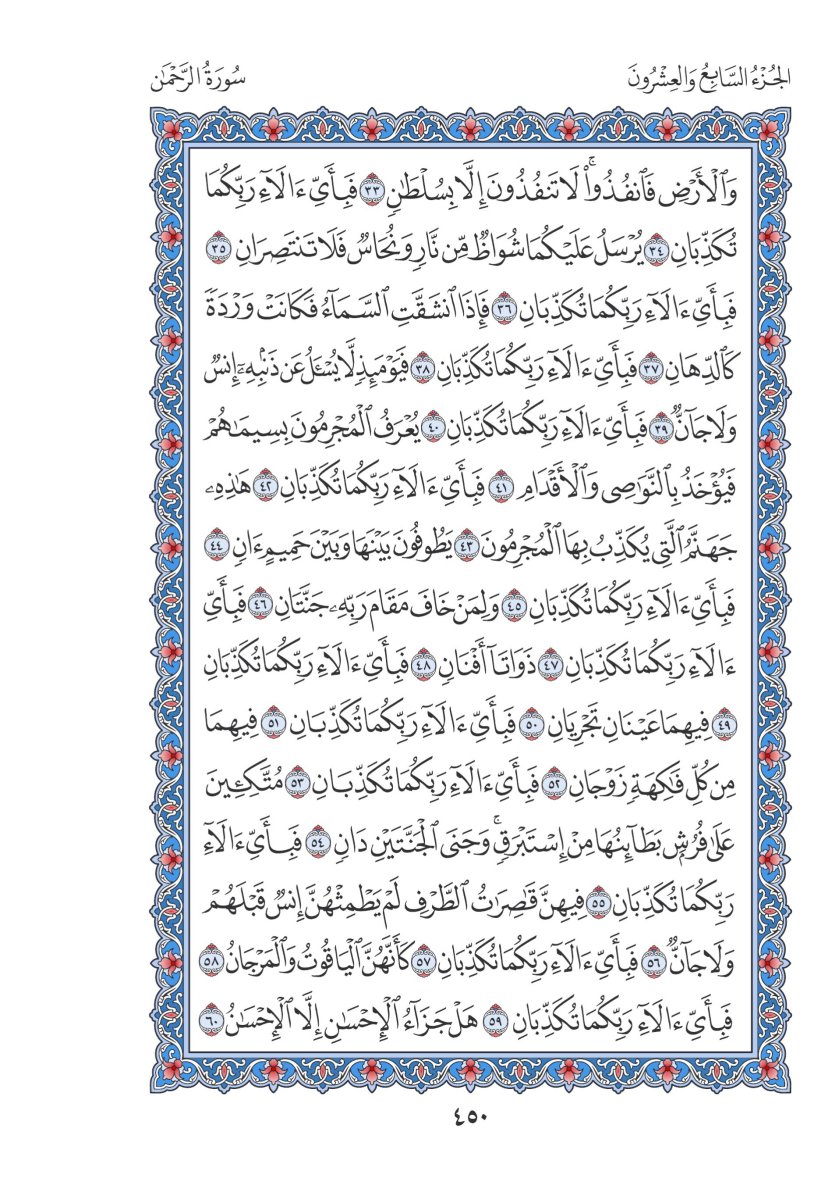 الجُزْءُ السَّابِعُ وَالعِشْرُونَ
سُورَةُ الرَّحْمَٰن
وَٱلْأَرْضِ فَٱنفُذُوا۟ۚ لَا تَنفُذُونَ إِلَّا بِسُلْطَٰنٖ ٣٣ فَبِأَيِّ ءَالَآءِ رَبِّكُمَا
تُكَذِّبَانِ ٣٤ يُرْسَلُ عَلَيْكُمَا شُوَاظٌ مِّن نَّارٖ وَنُحَاسٌ فَلَا تَنتَصِرَانِ ٣٥
فَبِأَيِّ ءَالَآءِ رَبِّكُمَا تُكَذِّبَانِ ٣٦ فَإِذَا ٱنشَقَّتِ ٱلسَّمَآءُ فَكَانَتْ وَرْدَةٗ
كَٱلدِّهَانِ ٣٧ فَبِأَيِّ ءَالَآءِ رَبِّكُمَا تُكَذِّبَانِ ٣٨ فَيَوْمَئِذٖ لَّا يُسْـَٔلُ عَن ذَنۢبِهِۦٓ إِنسٌ
وَلَا جَآنٌّ ٣٩ فَبِأَيِّ ءَالَآءِ رَبِّكُمَا تُكَذِّبَانِ ٤٠ يُعْرَفُ ٱلْمُجْرِمُونَ بِسِيمَٰهُمْ
فَيُؤْخَذُ بِٱلنَّوَٰصِى وَٱلْأَقْدَامِ ٤١ فَبِأَيِّ ءَالَآءِ رَبِّكُمَا تُكَذِّبَانِ ٤٢ هَٰذِهِۦ
جَهَنَّمُ ٱلَّتِى يُكَذِّبُ بِهَا ٱلْمُجْرِمُونَ ٤٣ يَطُوفُونَ بَيْنَهَا وَبَيْنَ حَمِيمٍ ءَانٖ ٤٤
فَبِأَيِّ ءَالَآءِ رَبِّكُمَا تُكَذِّبَانِ ٤٥ وَلِمَنْ خَافَ مَقَامَ رَبِّهِۦ جَنَّتَانِ ٤٦ فَبِأَيِّ
ءَالَآءِ رَبِّكُمَا تُكَذِّبَانِ ٤٧ ذَوَاتَآ أَفْنَانٖ ٤٨ فَبِأَيِّ ءَالَآءِ رَبِّكُمَا تُكَذِّبَانِ
٤٩ فِيهِمَا عَيْنَانِ تَجْرِيَانِ ٥٠ فَبِأَيِّ ءَالَآءِ رَبِّكُمَا تُكَذِّبَانِ ٥١ فِيهِمَا
مِن كُلِّ فَٰكِهَةٖ زَوْجَانِ ٥٢ فَبِأَيِّ ءَالَآءِ رَبِّكُمَا تُكَذِّبَانِ ٥٣ مُتَّكِـِٔينَ
عَلَىٰ فُرُشِۭ بَطَآئِنُهَا مِنْ إِسْتَبْرَقٖۚ وَجَنَى ٱلْجَنَّتَيْنِ دَانٖ ٥٤ فَبِأَيِّ ءَالَآءِ
رَبِّكُمَا تُكَذِّبَانِ ٥٥ فِيهِنَّ قَٰصِرَٰتُ ٱلطَّرْفِ لَمْ يَطْمِثْهُنَّ إِنسٌ قَبْلَهُمْ
وَلَا جَآنٌّ ٥٦ فَبِأَيِّ ءَالَآءِ رَبِّكُمَا تُكَذِّبَانِ ٥٧ كَأَنَّهُنَّ ٱلْيَاقُوتُ وَٱلْمَرْجَانُ ٥٨
فَبِأَيِّ ءَالَآءِ رَبِّكُمَا تُكَذِّبَانِ ٥٩ هَلْ جَزَآءُ ٱلْإِحْسَٰنِ إِلَّا ٱلْإِحْسَٰنُ ٦٠
٤٥٠